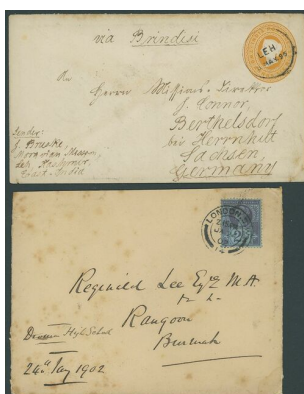 via Brindisi
LEH
An
Herrn Missions-Direktor
J. Connor,
Berthelsdorf
bei Herrnhut
Sachsen,
Germany
Sender:
Moravian Mission
Leh, Kashmir,
East India
LONDON
Reginald Lee Esqre M.A
Rangoon
Burmah
High School
24th Jany 1902